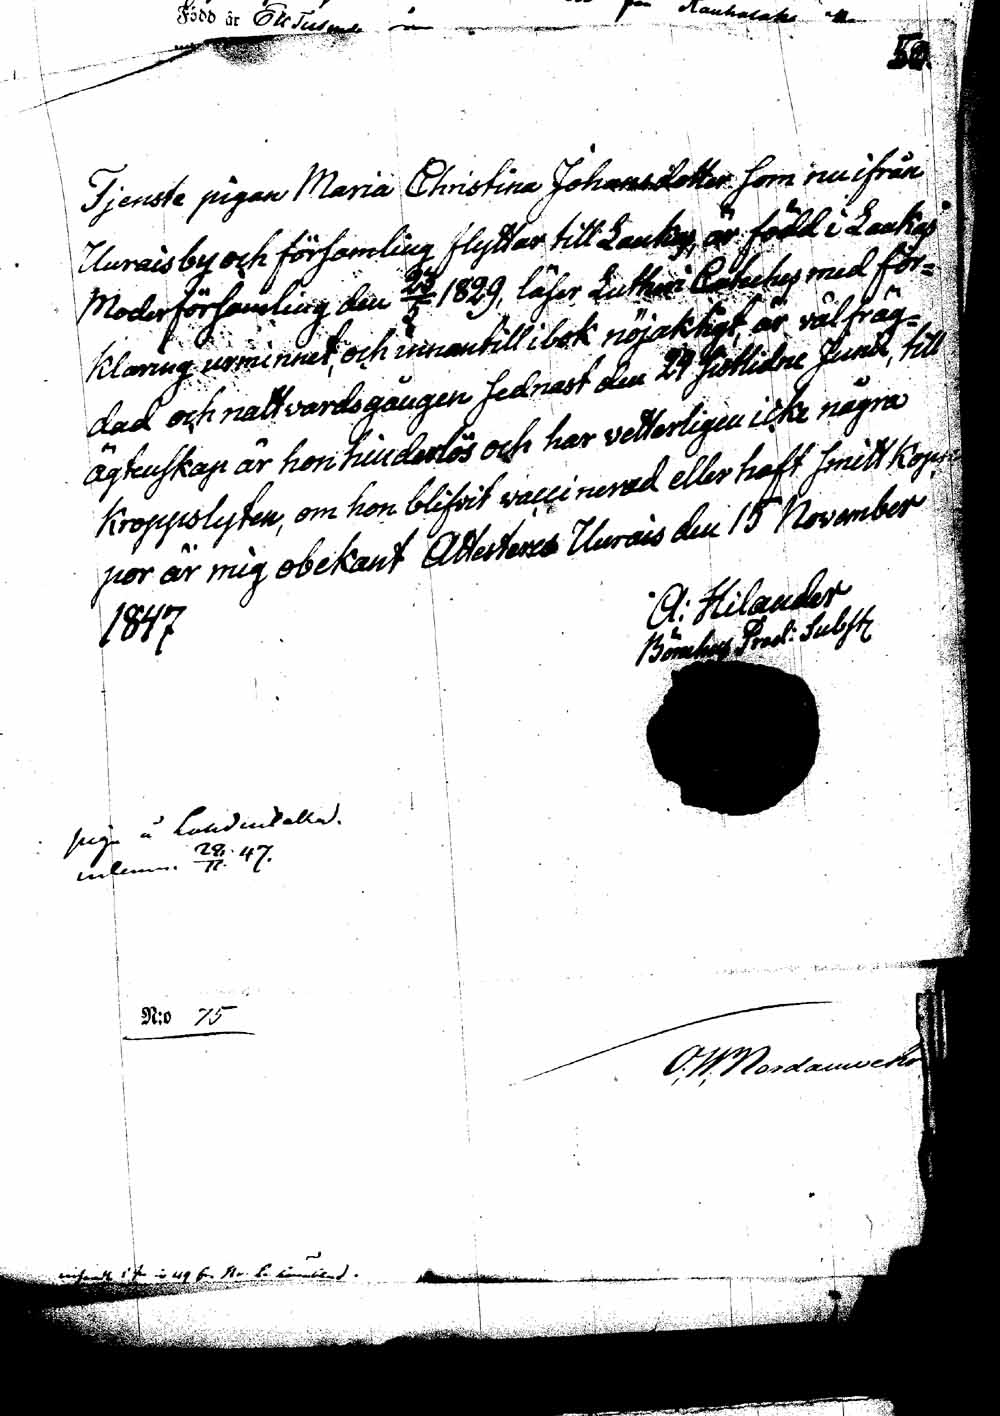 Född år Ett Tusende
50.
Tjenste pigan Maria Christina Johansdotter som nu ifrån
Uurais by och församling flyttar till Laukas, är född i Laukas
Moderförsamling den 1829, läser Lutheri Cateches med för=
klaring urminnet, och innantill i bok nöjaktigt, är välfräg=
dad och nattvardsgången sednast den 29 sistlidne Junii, till
ägtenskap är hon hinderlös och har vetterligen icke några
kroppslyten, om hon blifvit vaccinerad eller haft smitt kopp
por är mig obekant Attesteras Uurais den 15 November
1847
A: Hilander
Pred: Subst
28/11 47.
N:o 75